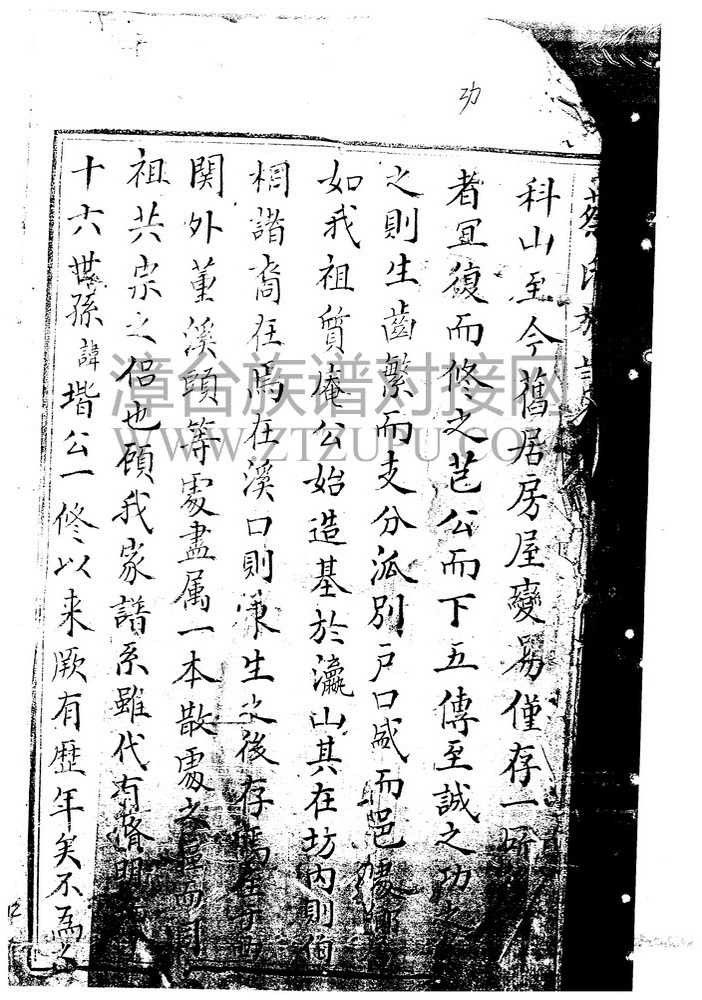 功
蔡氏族譜
科山至今舊居房屋變易僅存一所
者宜復而修之芑公而下五傳至誠之功之
之則生齒繁而支分派別戶口盛而邑
如我祖質庵公始造基於瀛山其在坊内則侚
桐諧裔在焉在溪口則秉生之後存焉在
関外董溪頭等處盡属一本散處之而
祖共宗之侶也頋我家譜系雖代有
十六世孫諱堦公一修以来厥有歴年矣不為
漳台族谱对接网
WWW.ZTZUPU.COM